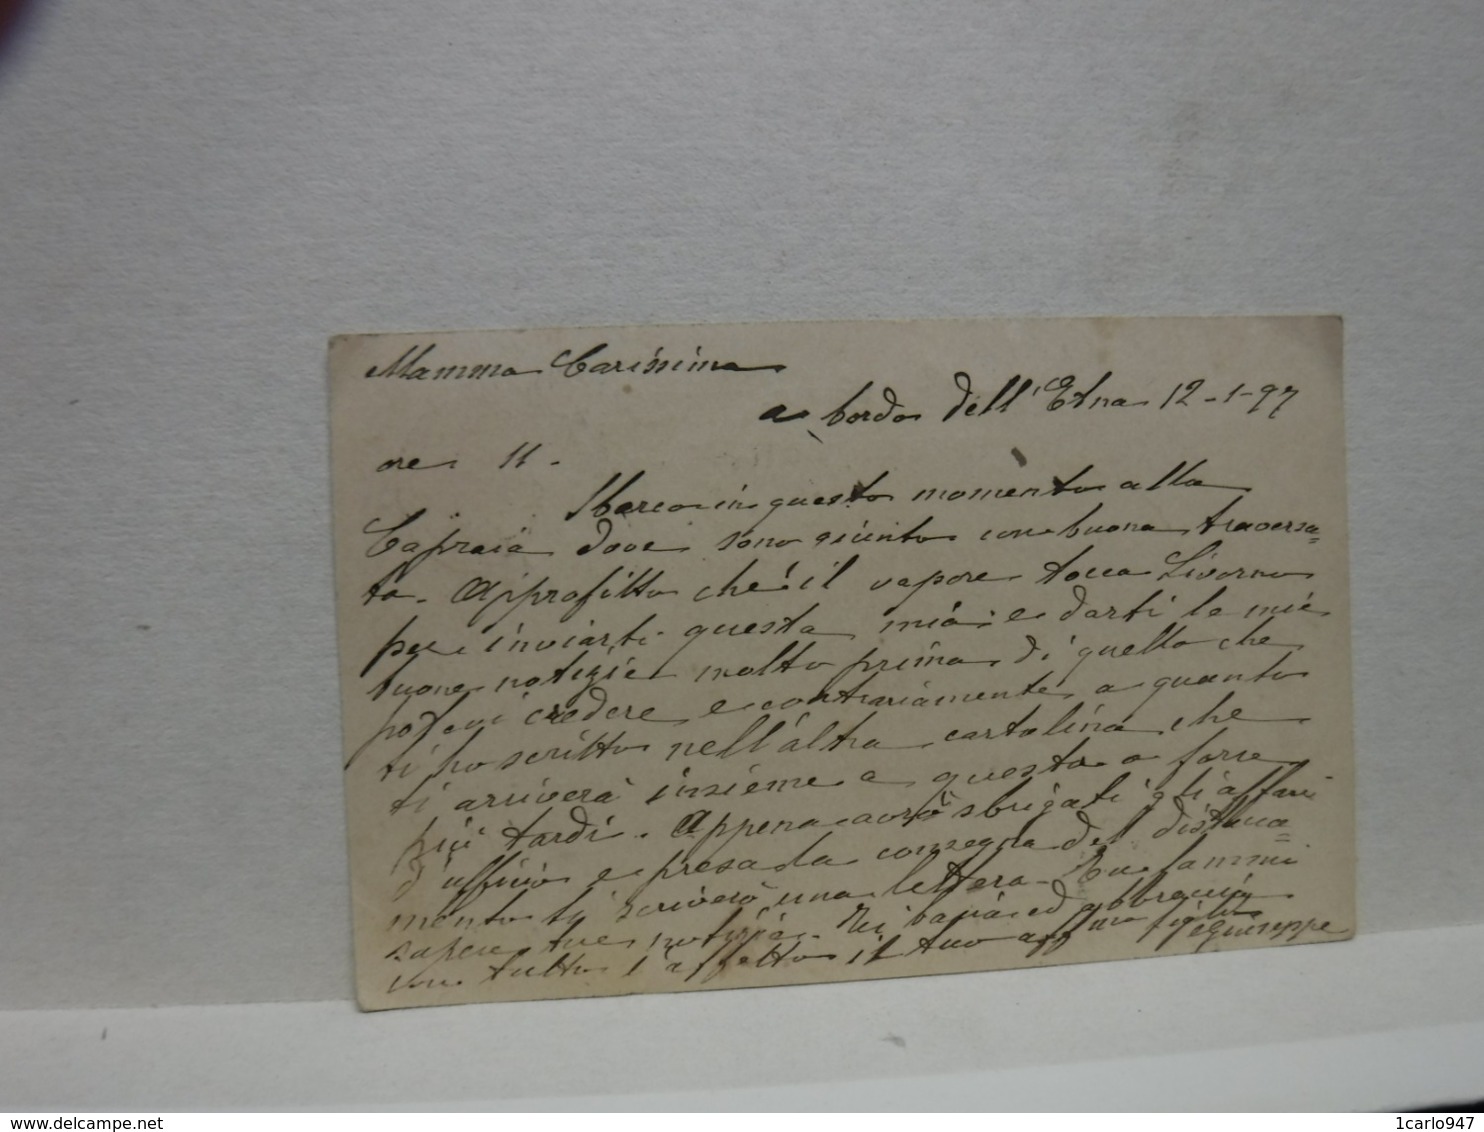 Mamma Carissima
a bordo dell'Etna 12-1-97
ore 11.
Sbarco in questo momento alla
Capraia dove sono giunto con buona traversa=
ta. Approfitto che il vapore tocca Livorno
per inviarti questa mia e darti le mie
buone notizie molto prima di quello che
potevi credere e contrariamente a quanto
ti ho scritto nell'altra cartolina che
ti arriverà insieme a questa o forse
più tardi. Appena avrò sbrigati gli affari
d'ufficio e presa la consegna del distacca=
mento ti scriverò una lettera. Tu fammi
sapere tue notizie. Ti bacia ed abbraccia
con tutto l'affetto il tuo aff.mo figlio
Giuseppe
www.delcampe.net
1carlo947